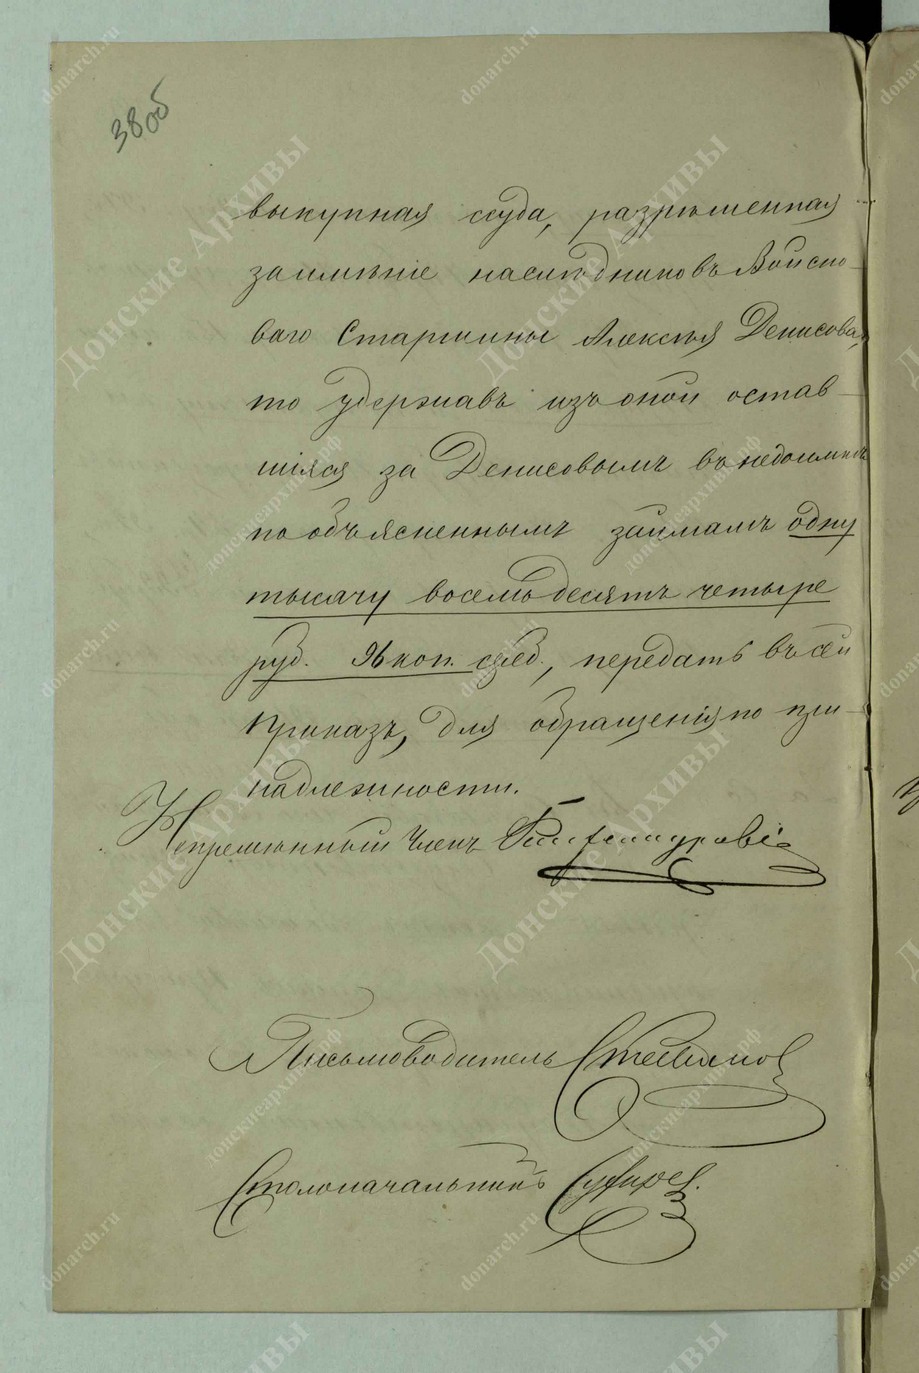 38об
выкупная ссуда, разрѣшенная
заимѣніе наслѣдниковъ Войско-
ваго Старшины Алексѣя Денисова,
то удержавъ изъ оной остав-
шіяся за Денисовымъ въ недоимкѣ
по объясненнымъ займамъ одну
тысячу восемьдесятъ четыре
руб. 96 коп. сереб., передать въ сей
Приказъ, для обращенія по при-
надлежности.
Непремѣнный Членъ
Письмоводитель
Столоначальникъ